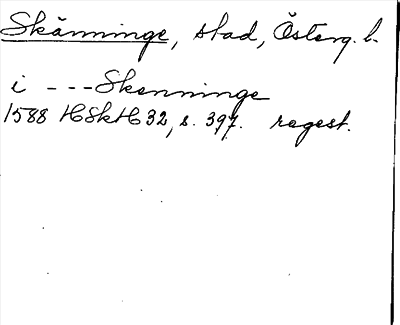 Skänninge, stad, Österg. l.
i --- Skenninge
1588 HSkH 32, s. 397. regest.